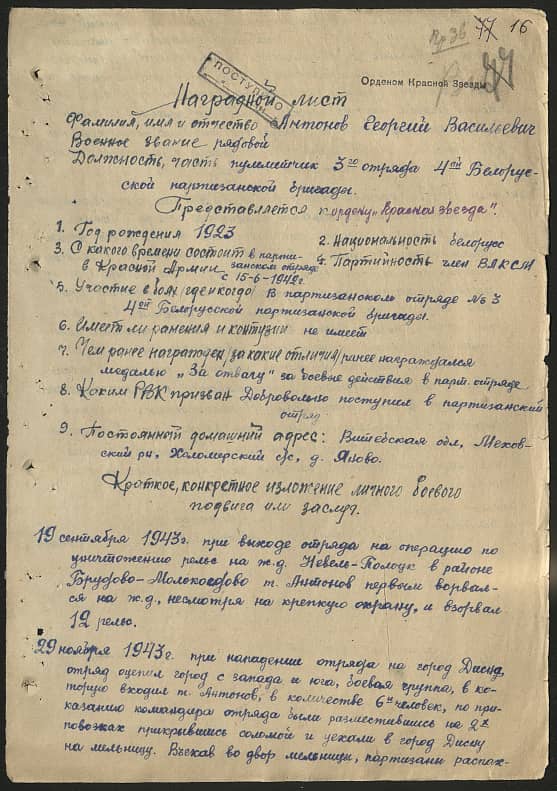 16
Орденом Красной Звезды
ПОСТУПИЛО
Наградной лист
Фамилия, имя и отчество Антонов Георгий Васильевич
Военное звание рядовой
Должность, часть пулеметчик 3го отряда 4ой Белорус-
ской партизанской бригады.
Представляется к ордену „Красная звезда".
1. Год рождения 1923
2. Национальность белорусс
3. С какого времени состоит в парти-
в Красной Армии занском отряде
с 15-6-1942г.
4. Партийность член ВЛКСМ
5. Участие в боях (где и когда) В партизанском отряде №3
4ой Белорусской партизанской бригады.
6. Имеет ли ранения и контузии не имеет
7. Чем ранее награжден (за какие отличия) ранее награждался
медалью „За отвагу" за боевые действия в парт. отряде
8. Каким РВК призван Добровольно поступил в партизанский
отряд
9. Постоянный домашний адрес: Витебская обл, Мехов-
ский рн, Холомерский с/с, д. Яново.
Краткое, конкретное изложение личного боевого
подвига или заслуг.
19 сентября 1943г. при выходе отряда на операцию по
уничтожению рельс на ж.д. Невель-Полоцк в районе
т. Антонов первым ворвал-
ся на ж.д., несмотря на крепкую охрану, и взорвал
12 рельс.
29 ноября 1943г. при нападении отряда на город Дисну,
отряд оцепил город с запада и юга, боевая группа, в ко-
торую входил т. Антонов, в количестве 6и человек, по при-
казанию командира отряда были разместившись на 2х
повозках прикрывшись соломой и уехали в город Дисну
на мельницу. Въехав во двор мельницы, партизаны распах-